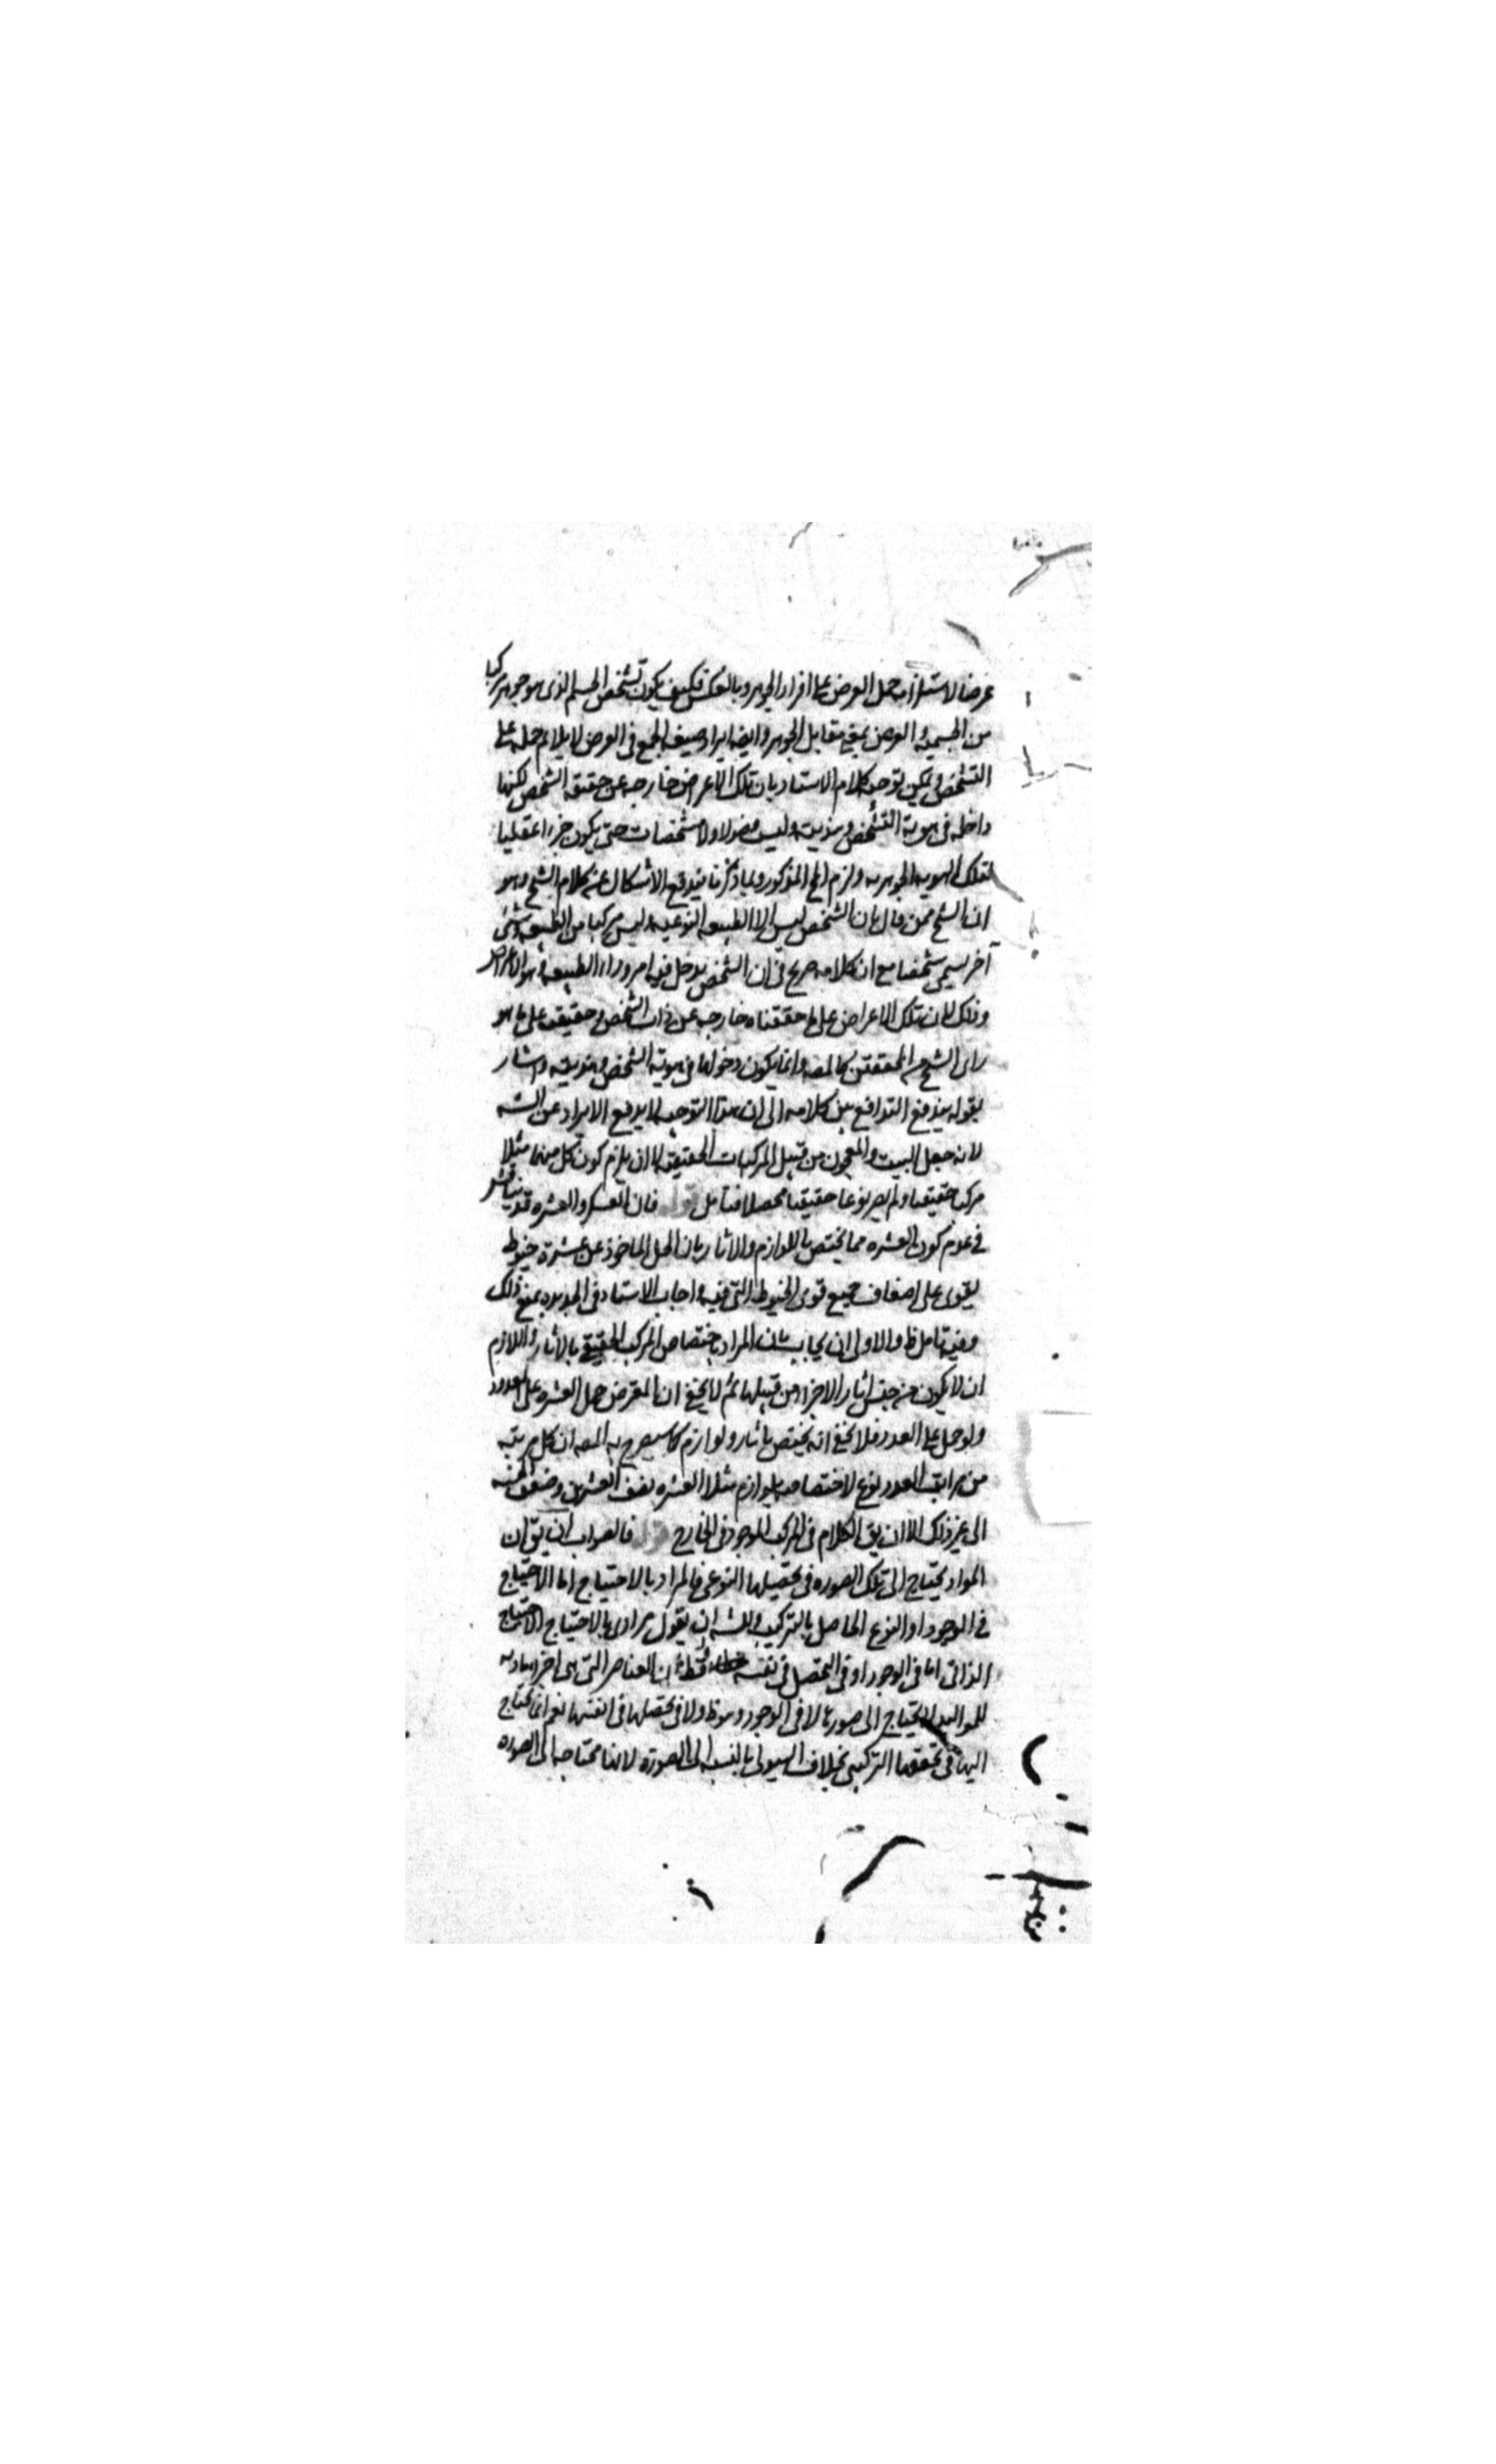 عرضا لاستلزامه حمل العرض على افراد الجوهر وبالعكس فكيف يكون تشخص الجسم الذى هو جوهر مركبا
من الجسمية والعرض بمعنى مقابل الجوهر وايضا ايراد صيغة الجمع فى العرض لا يلائم حمله على
التشخص ويمكن توجيه كلام الاستاد بان تلك الاعراض خارجه عن حقيقة الشخص لكنها
داخله فى هوية الشخص وهذيته وليست فصولا ولا مشخصات حتى يكون جزءا عقليا
لتلك الهويه الجوهريه ولزم المح المذكور وبما ذكرنا يندفع الاشكال عن كلام الشيخ وهو
ان الشيخ ممن قال بان الشخص ليس الا الطبيعه النوعيه وليس مركبا من الطبيعه وشئ
آخر يسمى تشخصا مع ان كلامه صريح فى ان الشخص يدخل فيه امر وراء الطبيعه وهو الاعراض
وذلك لان تلك الاعراض على ما حققناه خارجه عن ذات الشخص وحقيقته على ما هو
راى الشيخ من المحققين كالمصه وانما يكون دخولها فى هوية الشخص وهذيته واشار
بقوله يندفع التدافع بين كلاميه الى ان هذا التوجيه لا يدفع الايراد عن الشه
لانه جعل البيت والمعجون من قبيل المركبات الحقيقيه الا ان يلزم كون كل منهما مثلا
مركبا حقيقيا ولم يصر نوعا حقيقيا محصلا فتامل قوله فان العسكر والعشره قد يناقش
فى عدم كون العشره مما يختص باللوازم والاثار بان الحبل الماخوذ عن عشرة خيوط
يقوى على اضعاف جميع قوى الخيوط التى فيه واجاب الاستاد فى الجديده بمنع ذلك
وفيه تامل ظ والاولى ان يجاب بان المراد باختصاص المركب الحقيقى بالاثار واللوازم
ان لا يكون من جنس اثار الاجزاء من قبيلها ثم لا يخفى ان المعرض حمل العشره على المعدود
ولو حمل على العدد فلا يخفى انه يختص باثار ولوازم كما سيصرح به المصه ان كل مرتبه
من مراتب العدد نوع لاختصاصه بلوازم مثلا العشره نصف العشرين وضعف الخمسه
الى غير ذلك الا ان يق الكلام فى المركب الموجود فى الخارج قوله فالصواب ان يق ان
المواد يحتاج الى تلك الصوره فى تحصيلها النوعى فالمراد بالاحتياج اما الاحتياج
فى الوجود او النوع الحاصل بالتركيب وللشه ان يقول مرادى بالاحتياج الاحتياج
الذاتى اما فى الوجود او فى التحصل فى نفسه فقط ان العناصر التى هى اجزاء ماديه
للمواليد لا يحتاج الى صورها لا فى الوجود وهو ظ ولا فى تحصلها فى انفسها نعم انما يحتاج
اليها فى تحققها التركيبى بخلاف الهيولى بالنسبه الى الصورة لانها محتاجه الى الصوره